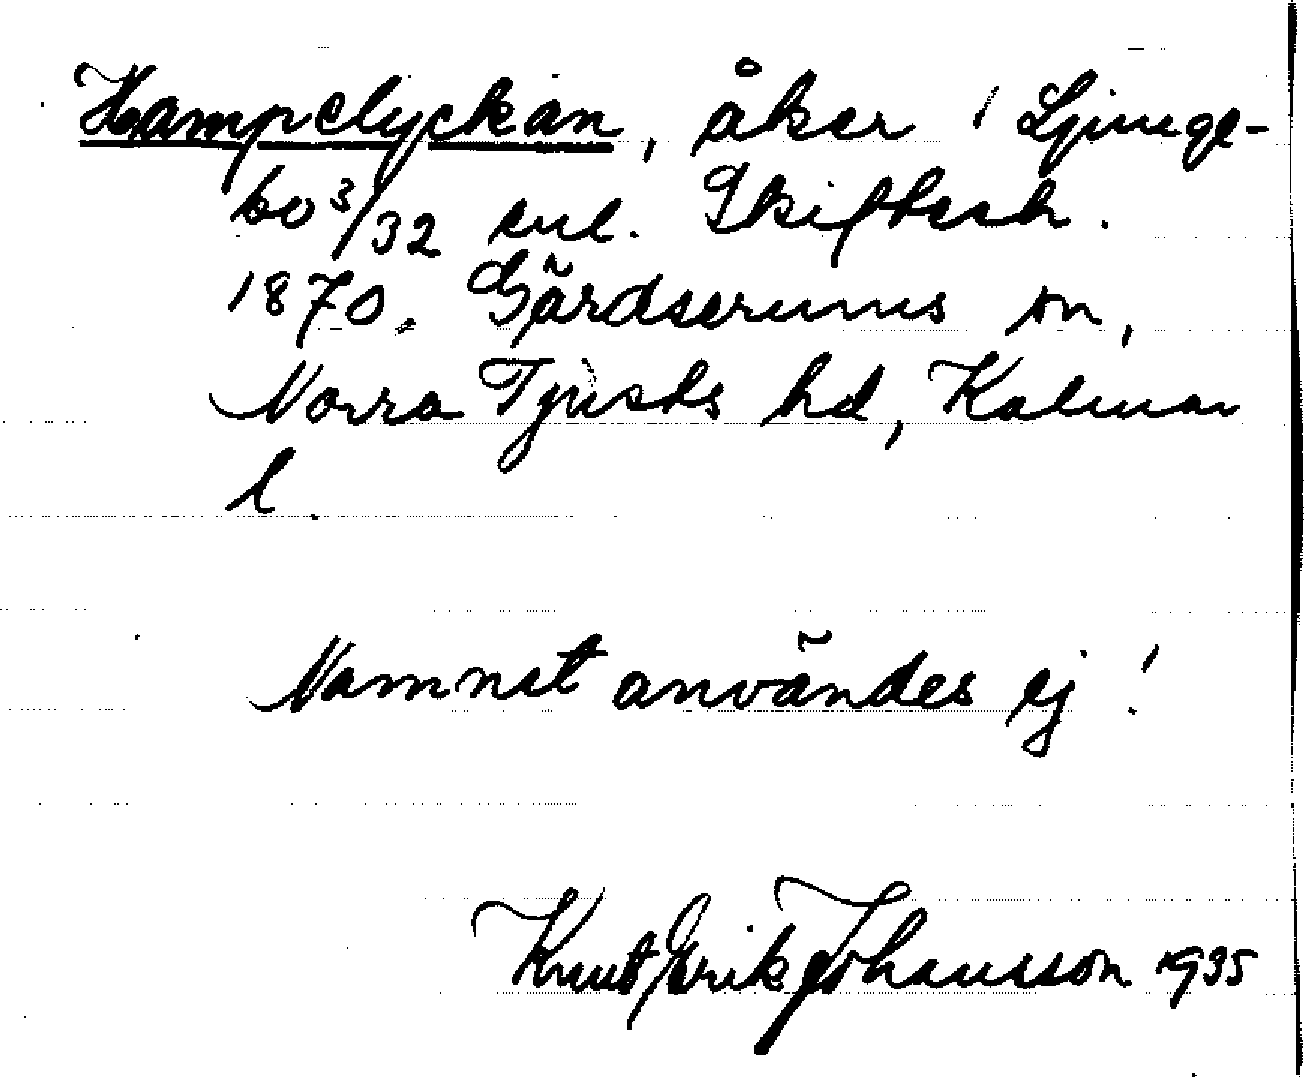 Hampelyckan, åker i Ljunge-
bo 3/32 enl. Skiftesh.
1870. Gärdserums sn,
Norra Tjusts hd, Kalmar
l.
Namnet användes ej!
Knut Erik Johansson 1935